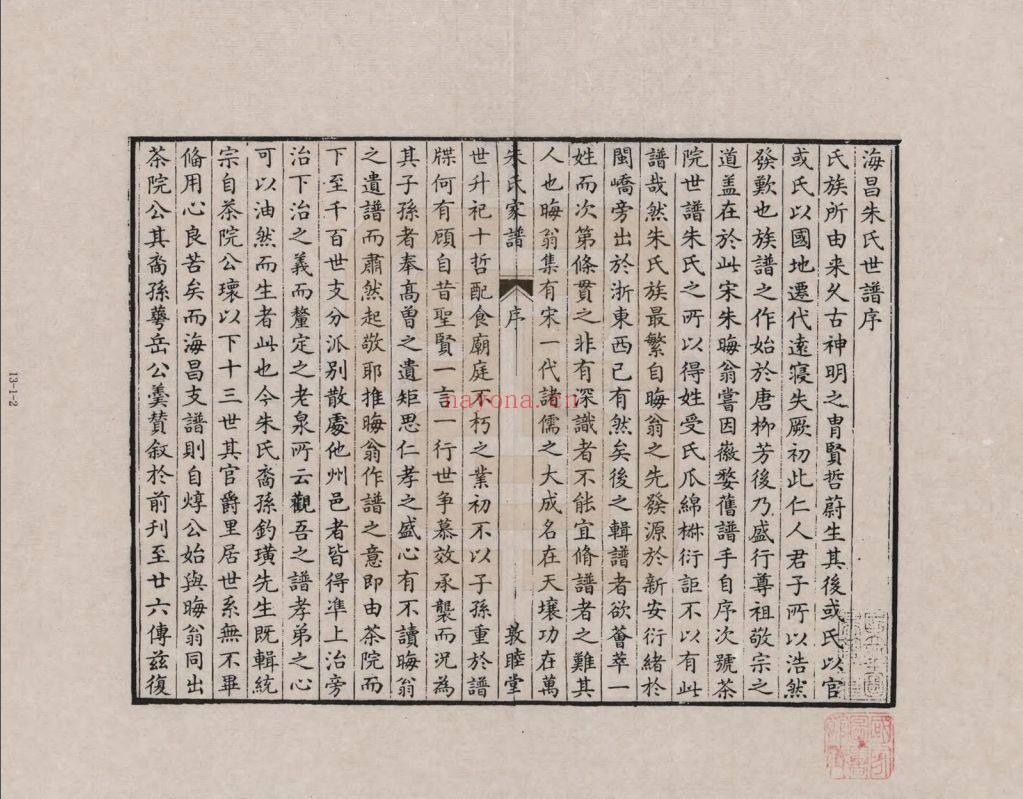 海昌朱氏世譜序
氏族所由来久古神明之胄賢哲蔚生其後或氏以官
或氏以國地遷代遠寖失厥初此仁人君子所以浩然
發歎也族譜之作始於唐柳芳後乃盛行尊祖敬宗之
道盖在於此宋朱晦翁嘗因徽婺舊譜手自序次號茶
院世譜朱氏之所以得姓受氏瓜綿椒衍詎不以有此
譜哉然朱氏族最繁自晦翁之先發源於新安衍緒於
閩嶠旁出於浙東西已有然矣後之輯譜者欲薈萃一
姓而次第條貫之非有深識者不能宜脩譜者之難其
人也晦翁集有宋一代諸儒之大成名在天壤功在萬
朱氏家譜
序
敦睦堂
世升祀十哲配食廟庭不朽之業初不以子孫重於譜
牒何有顧自昔聖賢一言一行世争慕效承襲而況為
其子孫者奉高曾之遺矩思仁孝之盛心有不讀晦翁
之遺譜而肅然起敬耶推晦翁作譜之意即由茶院而
下至千百世支分派別散處他州邑者皆得準上治旁
治下治之義而釐定之老泉所云觀吾之譜孝弟之心
可以油然而生者此也今朱氏裔孫釣璜先生既輯統
宗自茶院公瓌以下十三世其官爵里居世系無不畢
備用心良苦矣而海昌支譜則自焞公始與晦翁同出
茶院公其裔孫蕚岳公羮賛敘於前刊至廿六傳茲復
13-1-2
nayona.cn